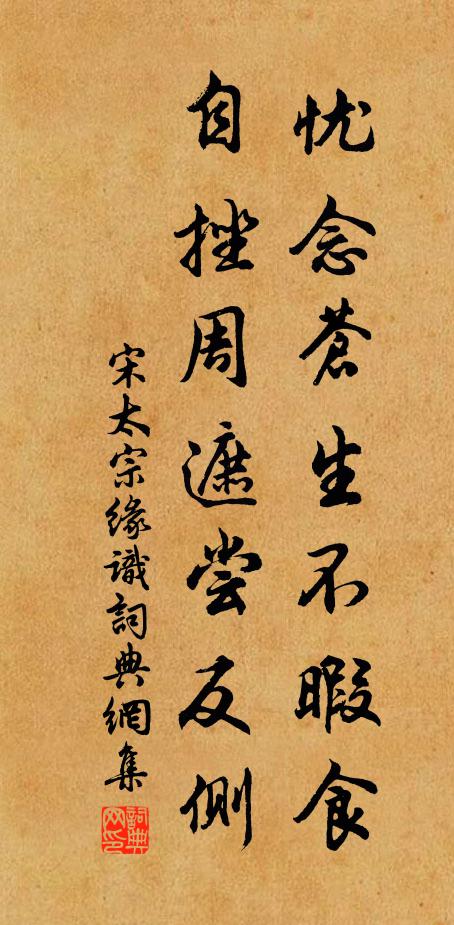 忧念蒼生不暇食
自挫周遮尝反侧
宋太宗缘識詞典網集
詞典网印